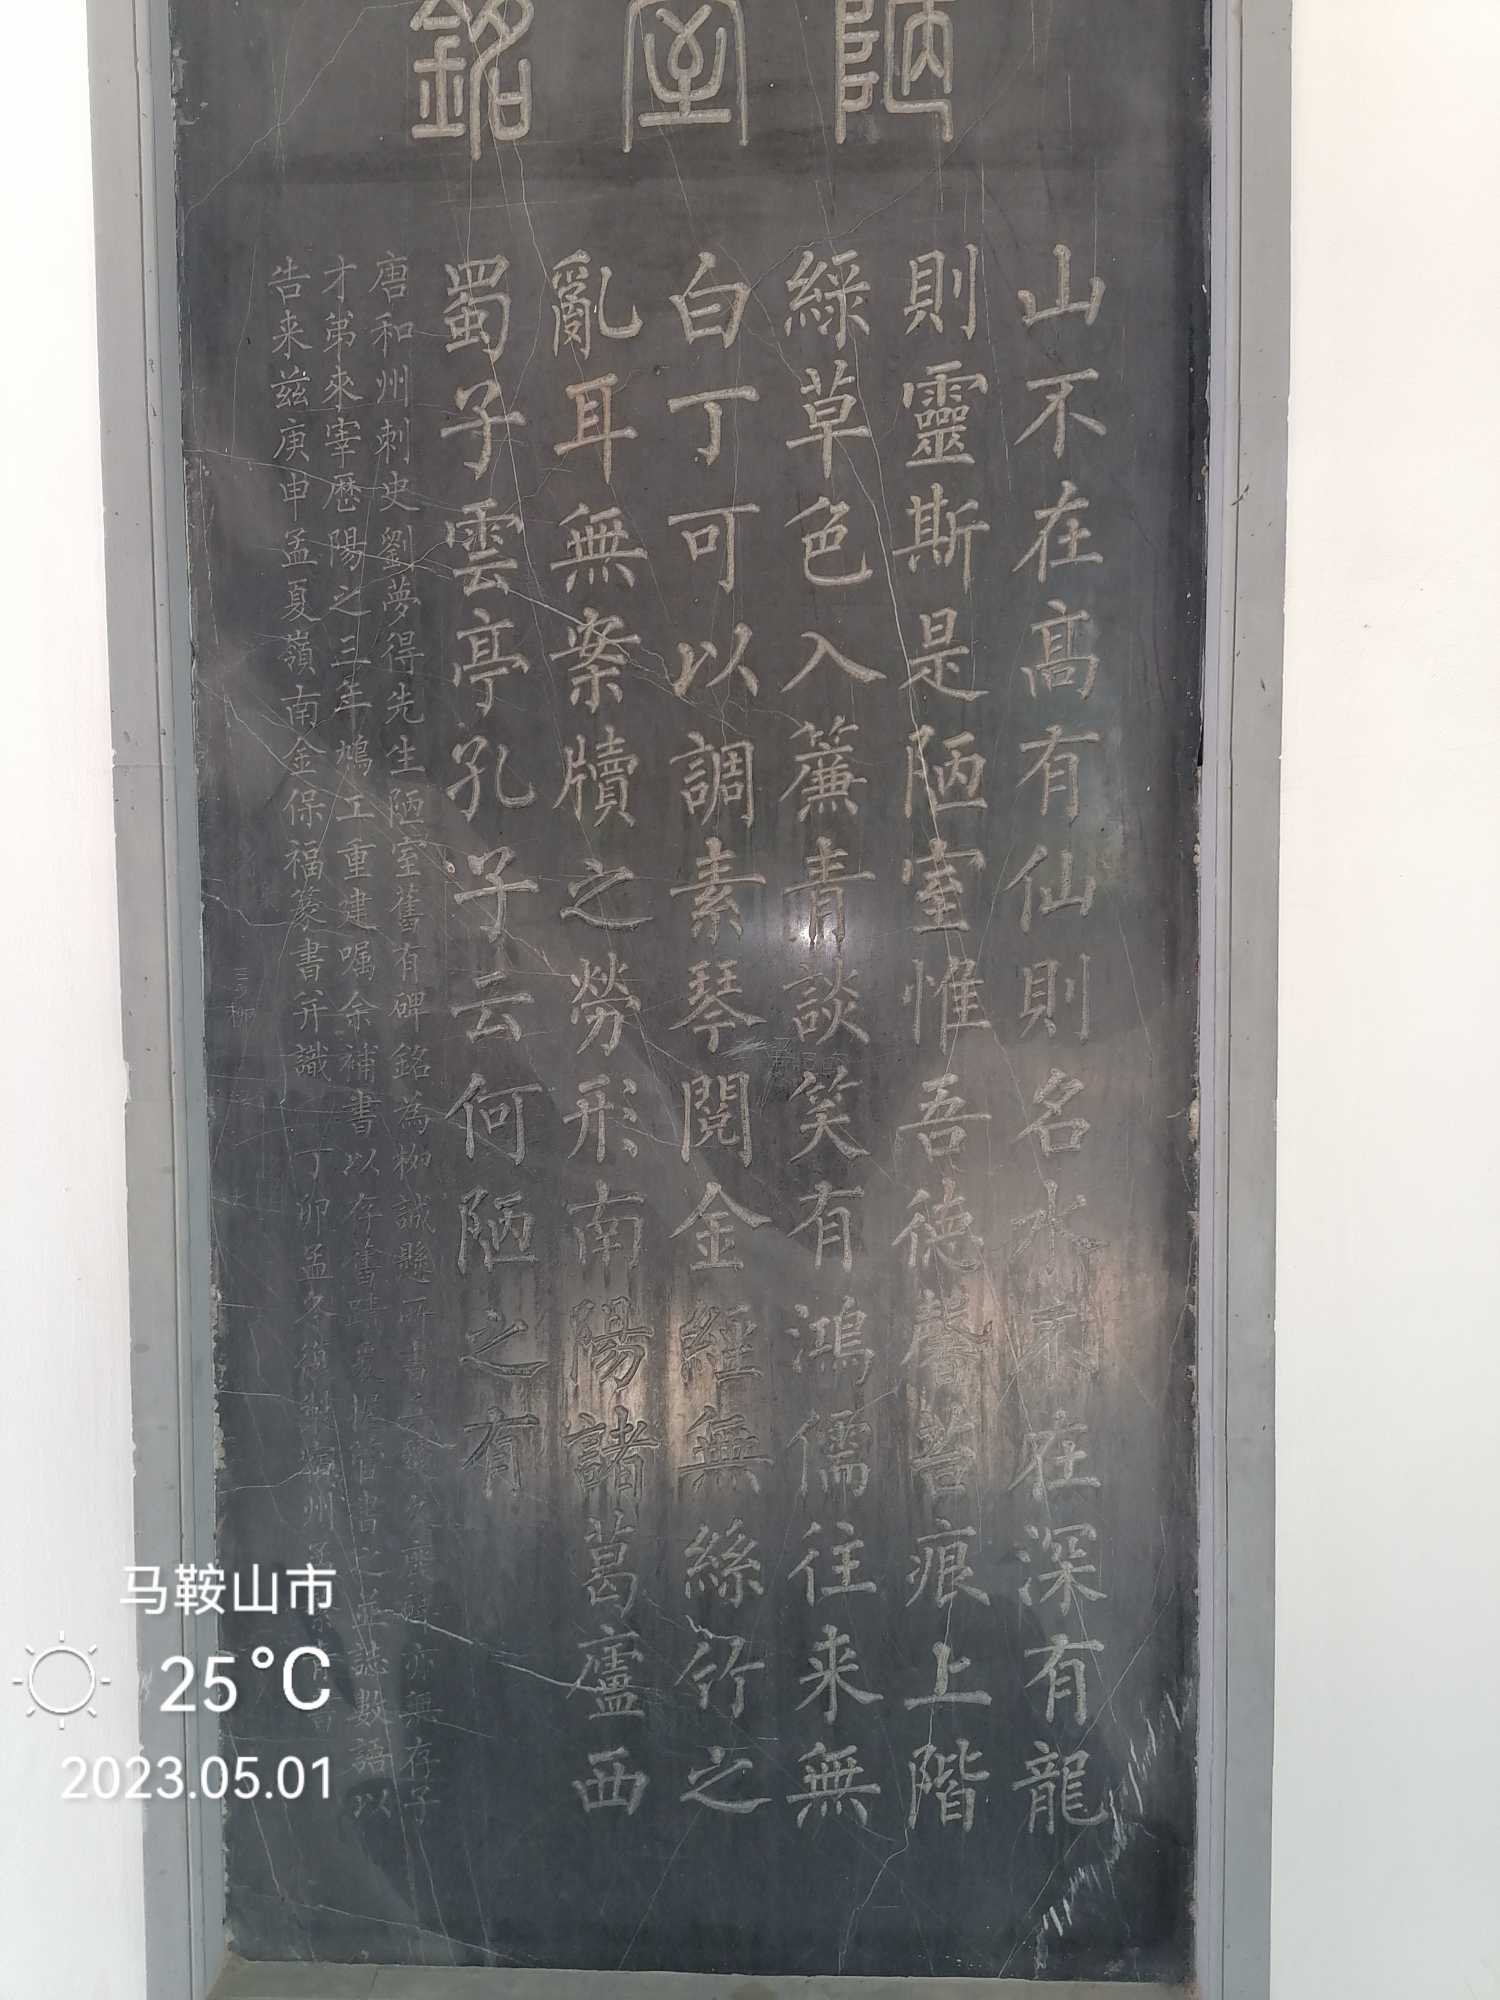 陋室銘
山不在高有仙則名水不在深有龍
則靈斯是陋室惟吾德馨苔痕上階
綠草色入簾青談笑有鴻儒往来無
白丁可以調素琴閱金經無絲竹之
亂耳無案牘之勞形南陽諸葛廬西
蜀子雲亭孔子云何陋之有
唐和州刺史劉夢得先生陋室舊有碑銘為柳誠懸所書亦無存子
才弟來宰歷陽之三年鳩工重建嘱余補書以存舊蹟書之並誌數語以
告来兹庚申孟夏嶺南金保福篆書并識 丁卯孟冬
马鞍山市
25°C
2023.05.01